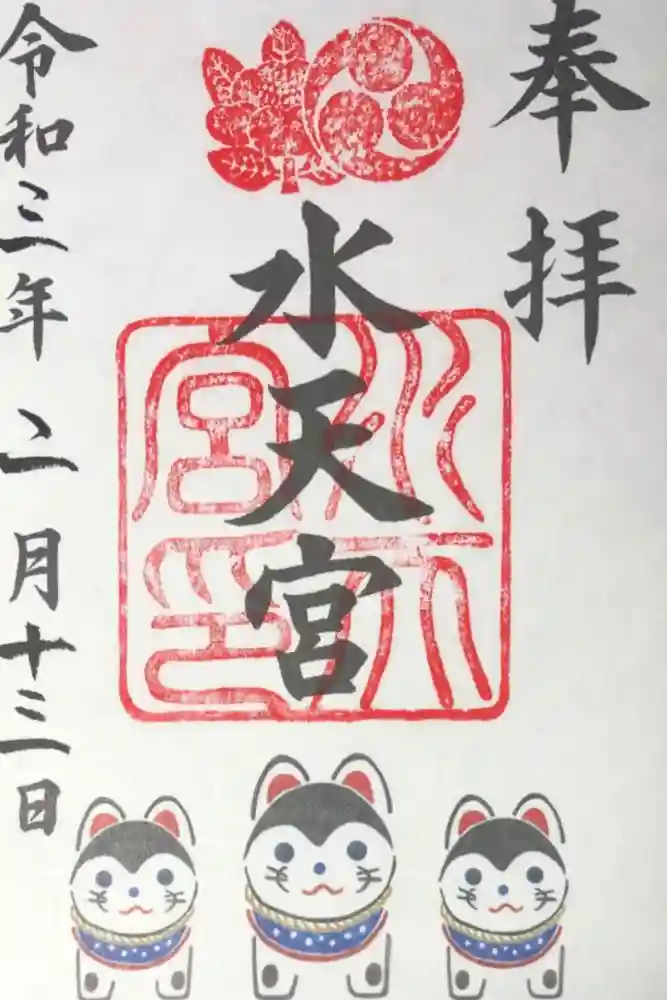 奉拝
水天宮
水天宮印
令和三年二月十三日